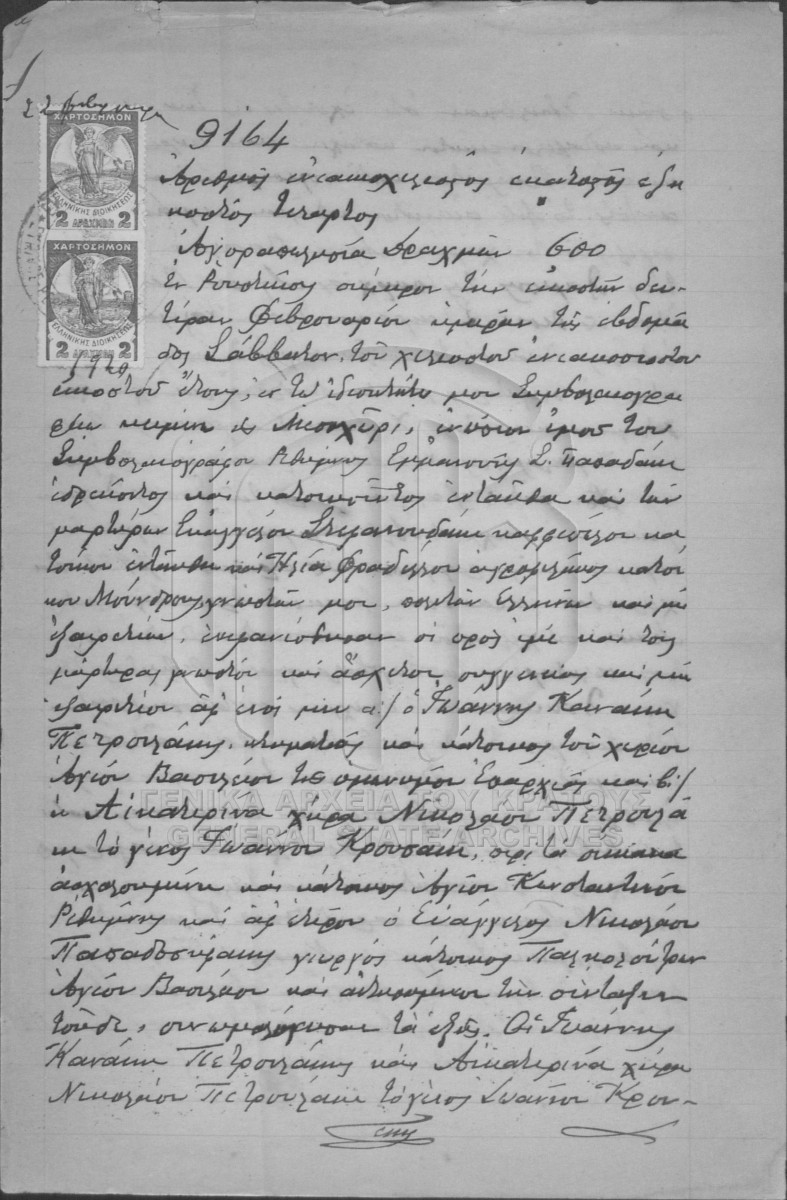 22 Φεβρουαρ
ΧΑΡΤΟΣΗΜΟΝ
ΕΛΛΗΝΙΚΗΣ ΔΙΟΙΚΗΣΕΩΣ
2 ΔΡΑΧΜΑΙ 2
ΧΑΡΤΟΣΗΜΟΝ
ΕΛΛΗΝΙΚΗΣ ΔΙΟΙΚΗΣΕΩΣ
2 ΔΡΑΧΜΑΙ 2
1920
9164
Αριθμός ενακισχιλιοστός εκατοστός εξη
κοστός τέταρτος
Αγοραπωλησία Δραχμών 600
Εν Ρουστίκοις σήμερον την εικοστήν δευ-
τέραν Φεβρουαρίου ημέραν της εβδομά
δος Σάββατον, του χιλιοστού ενακοσιοστού
εικοστού έτους, εν τω ιδιοκτήτω μου Συμβολαιογρα
φείω κειμένω εις Μεσοχώρι, ενώπιον εμού του
Συμβολαιογράφου Ρεθύμνης Εμμανουήλ Σ. Παπαδάκη
εδρεύοντος και κατοικούντος ενταύθα και των
μαρτύρων Ευαγγέλου Στεμανουδάκη καφφεπώλου κα
τοίκου ενταύθα και Ηλία Φραδέλλου αγροφύλακος κατοί
κου Μούνδρους γνωστών μου, πολιτών Ελλήνων και μη
εξαιρετέων, ενεφανίσθησαν οι προς εμέ και τους
μάρτυρας γνωστοί και άσχετοι συγγενείας και μη
εξαιρετέοι αφ' ενός μεν α/ ο Ιωάννης Κανάκη
Πετρουλάκης, κτηματίας και κάτοικος του χωρίου
Αγίου Βασιλείου της ομωνύμου Επαρχίας και β/
η Αικατερίνα χήρα Νικολάου Πετρουλά
κη το γένος Ιωάννου Κρουσάκη, περί τα οικιακά
ασχολουμένη και κάτοικος Αγίου Κωνσταντίνου
Ρεθύμνης και αφ' ετέρου ο Ευάγγελος Νικολάου
Παπαδοσηφάκης γεωργός κάτοικος Παληολούτρων
Αγίου Βασιλείου και αιτησάμενοι την σύνταξιν
τούδε, συνωμολόγησαν τα εξής. Οι Ιωάννης
Κανάκη Πετρουλάκης και Αικατερίνα χήρα
Νικολάου Πετρουλάκη το γένος Ιωάννου Κρου-
ΓΕΝΙΚΑ ΑΡΧΕΙΑ ΤΟΥ ΚΡΑΤΟΥΣ
GENERAL STATE ARCHIVES